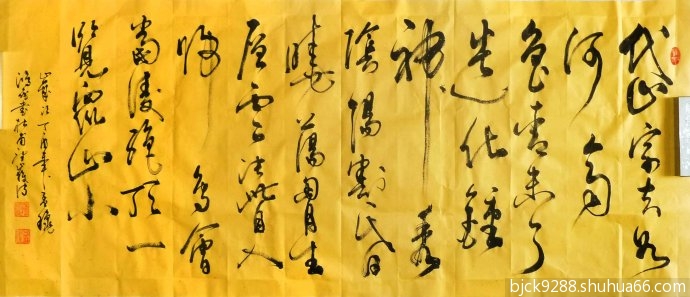 岱宗夫如
何齊
魯青未了
造化鍾
神秀
陰陽割昏
曉蕩胸生
層雲決眥入
歸鳥會
當凌絕頂一
覽衆山小
丁酉年
bjck9288.shuhua66.com